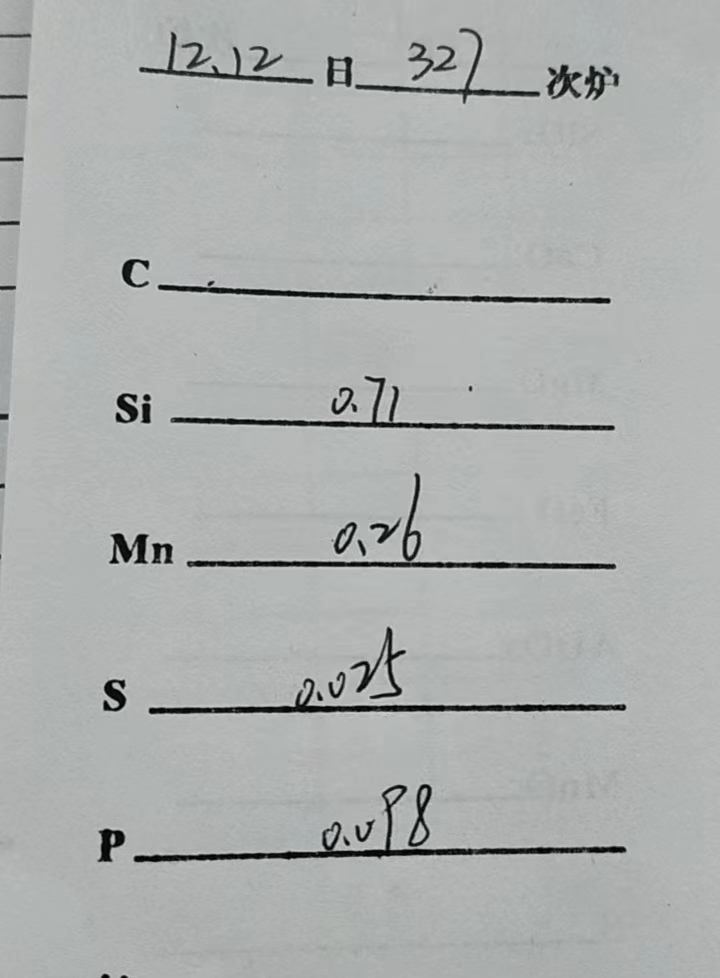 12.12 日 327 次炉
C
Si 0.71
Mn 0.26
S 0.025
P 0.098